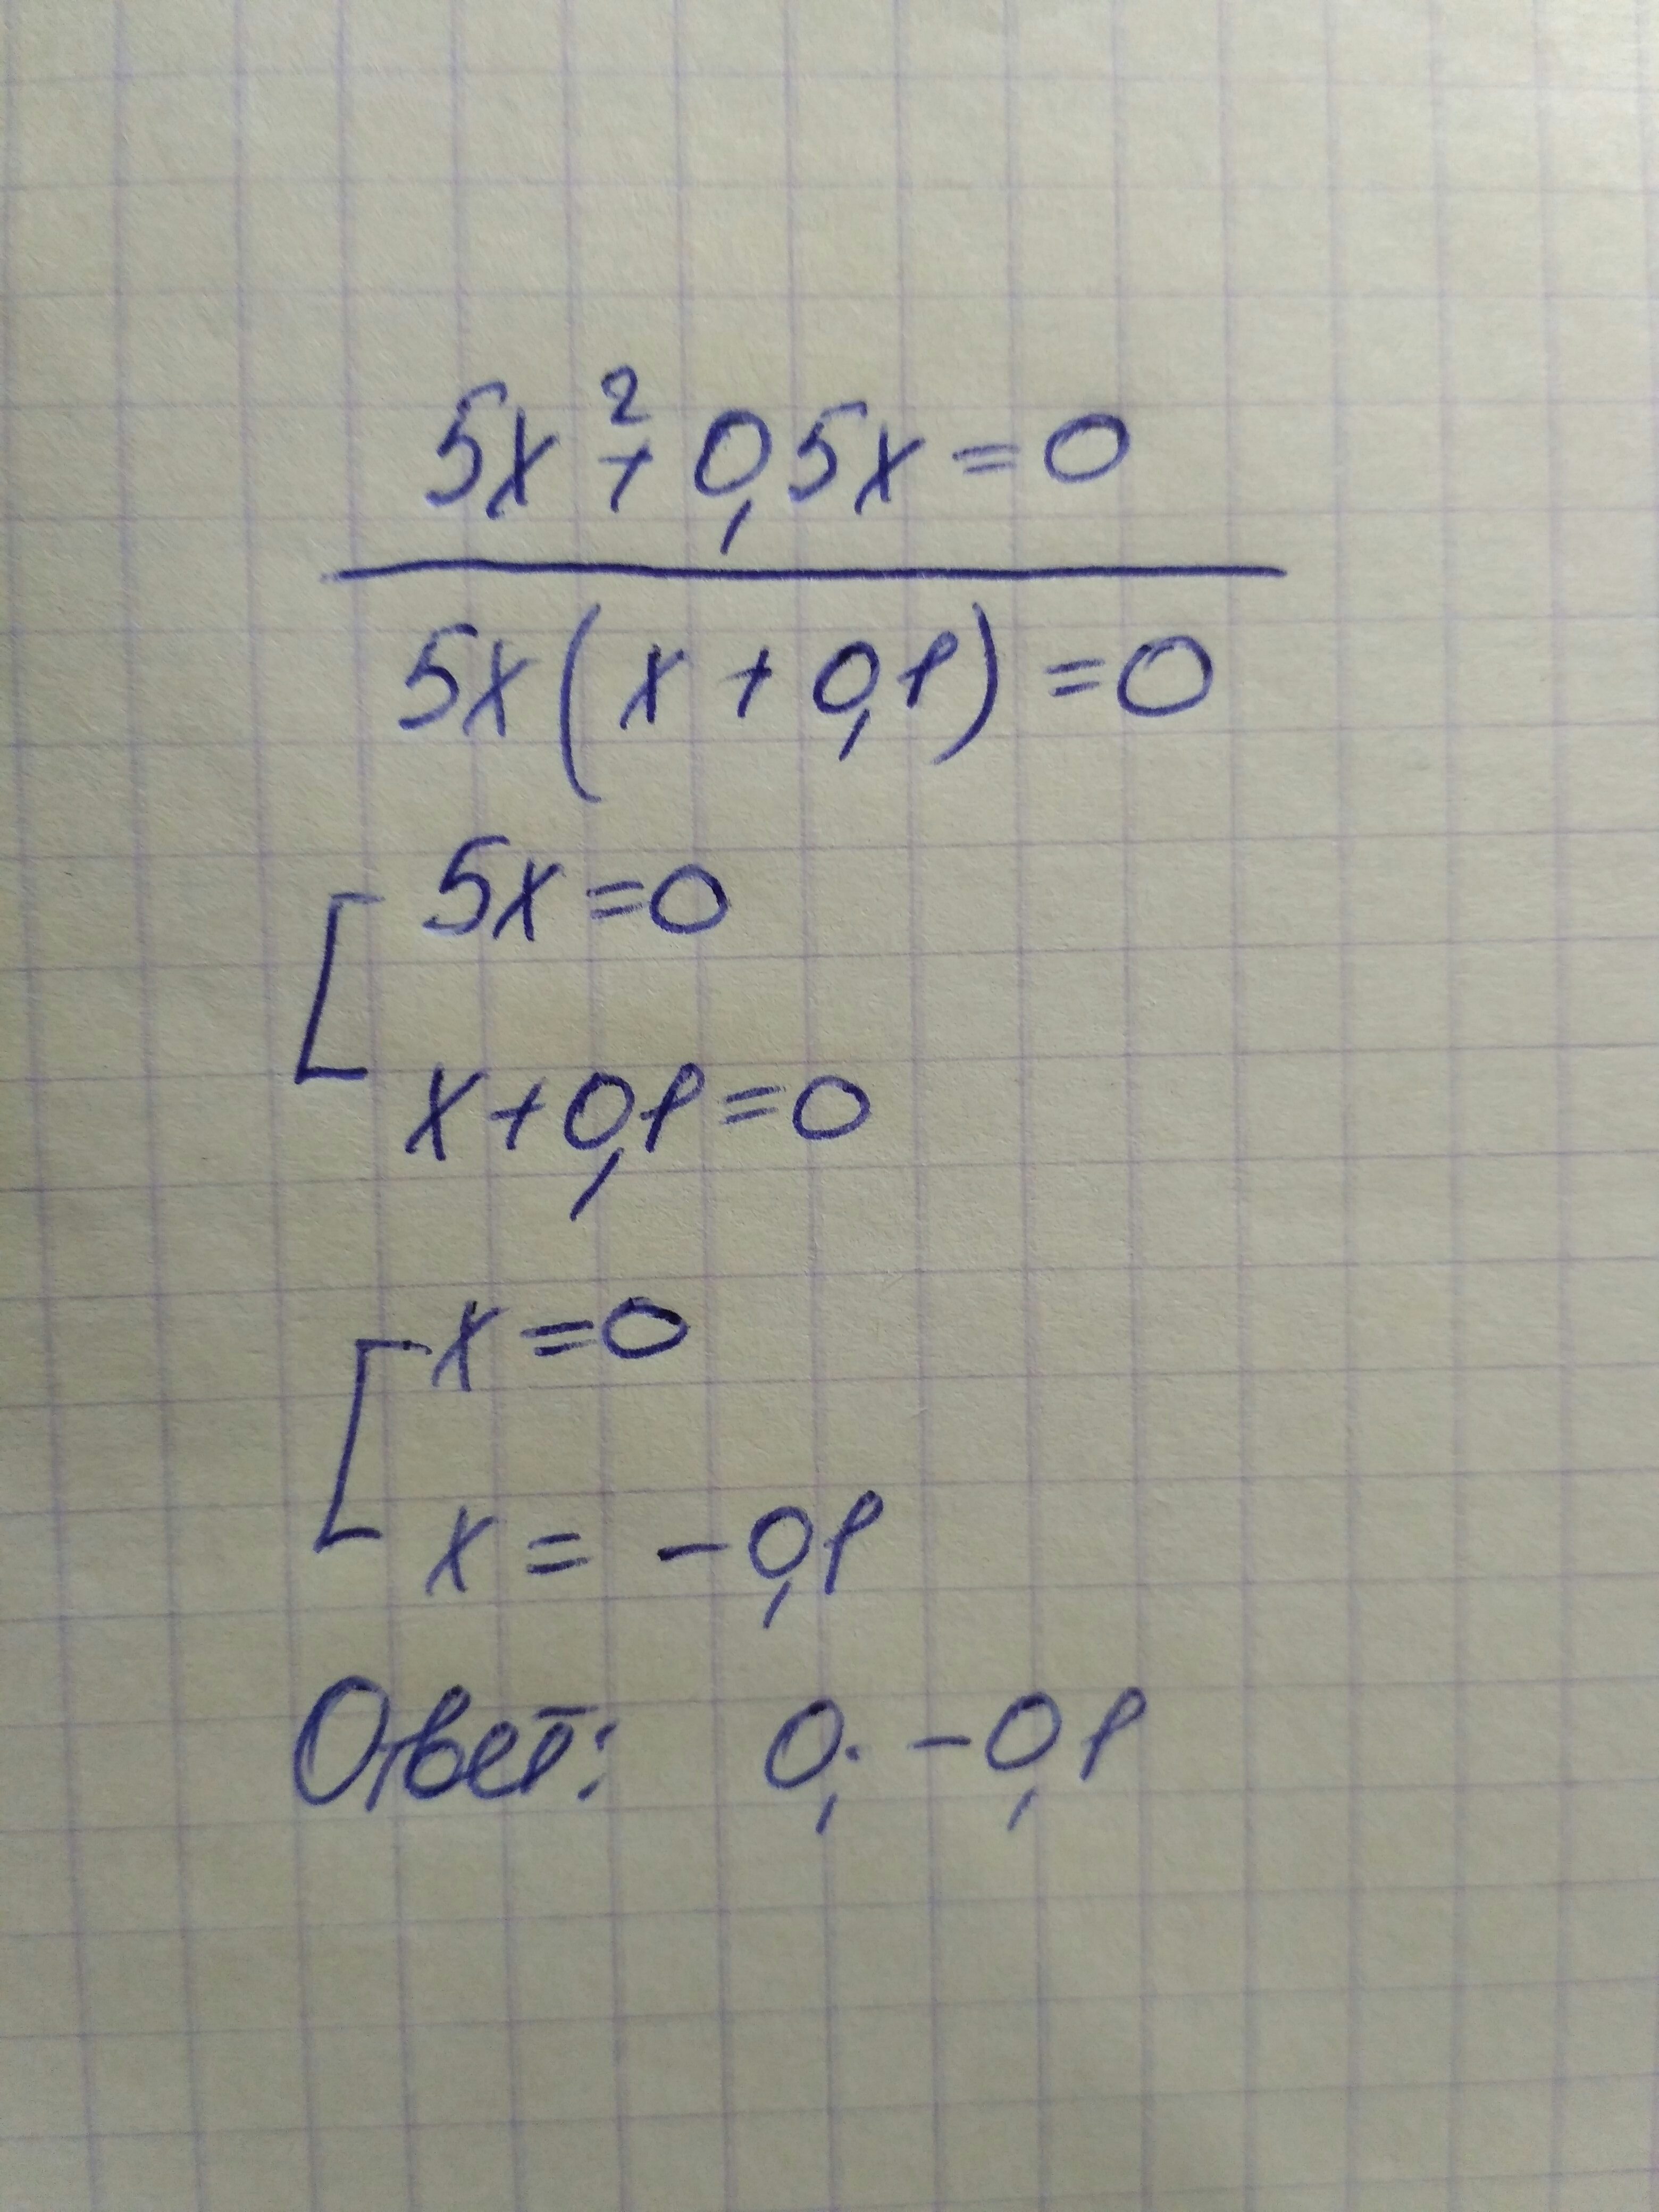 5x² + 0,5x = 0
5x(x + 0,1) = 0
5x = 0
x + 0,1 = 0
x = 0
x = -0,1
Ответ: 0; -0,1